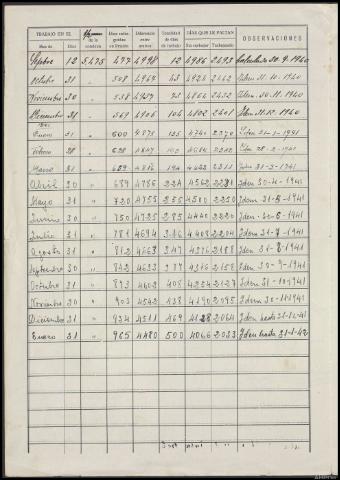 TRABAJO EN EL DIAS QUE FALTAN OBSERVACIONES
Mes de Días de la condena Días extinguidos en Prisión Diferencia entre ambos Cantidad de días de trabajo Sin trabajar Trabajando
Sepbre 12 5.475 477 4998 12 4986 2493 30-9-1940
Octubre 31 " 508 4967 43 4924 2462 Idem 31-10-1940
Noviembre 30 " 538 4937 73 4864 2432 Idem 30-11-1940
Diciembre 31 " 569 4906 104 4802 2401 Idem 31-12-1940
1941
Enero 31 " 600 4875 135 4740 2370 Idem 31-1-1941
Febrero 28 " 628 4847 163 Idem 28-2-1941
Marzo 31 " 659 4816 194 4622 2311 Idem 31-3-1941
Abril 30 " 689 4786 224 4562 2281 Idem 30-4-1941
Mayo 31 " 720 4755 255 4500 2250 Idem 31-5-1941
Junio 30 " 750 4725 285 4440 2220 Idem 30-6-1941
Julio 31 " 781 4694 316 4408 2204 Idem 31-7-1941
Agosto 31 " 812 4663 347 4376 2188 Idem 31-8-1941
Septiembre 30 " 842 4633 377 4316 2158 Idem 30-9-1941
Octubre 31 " 873 4602 408 4254 2127 Idem 31-10-1941
Noviembre 30 " 903 4542 438 4190 2095 Idem 30-11-1941
Diciembre 31 " 934 4511 469 4128 2064 Idem hasta 31-12-41
Enero 31 " 965 4480 500 4066 2033 Idem hasta 31-1-42